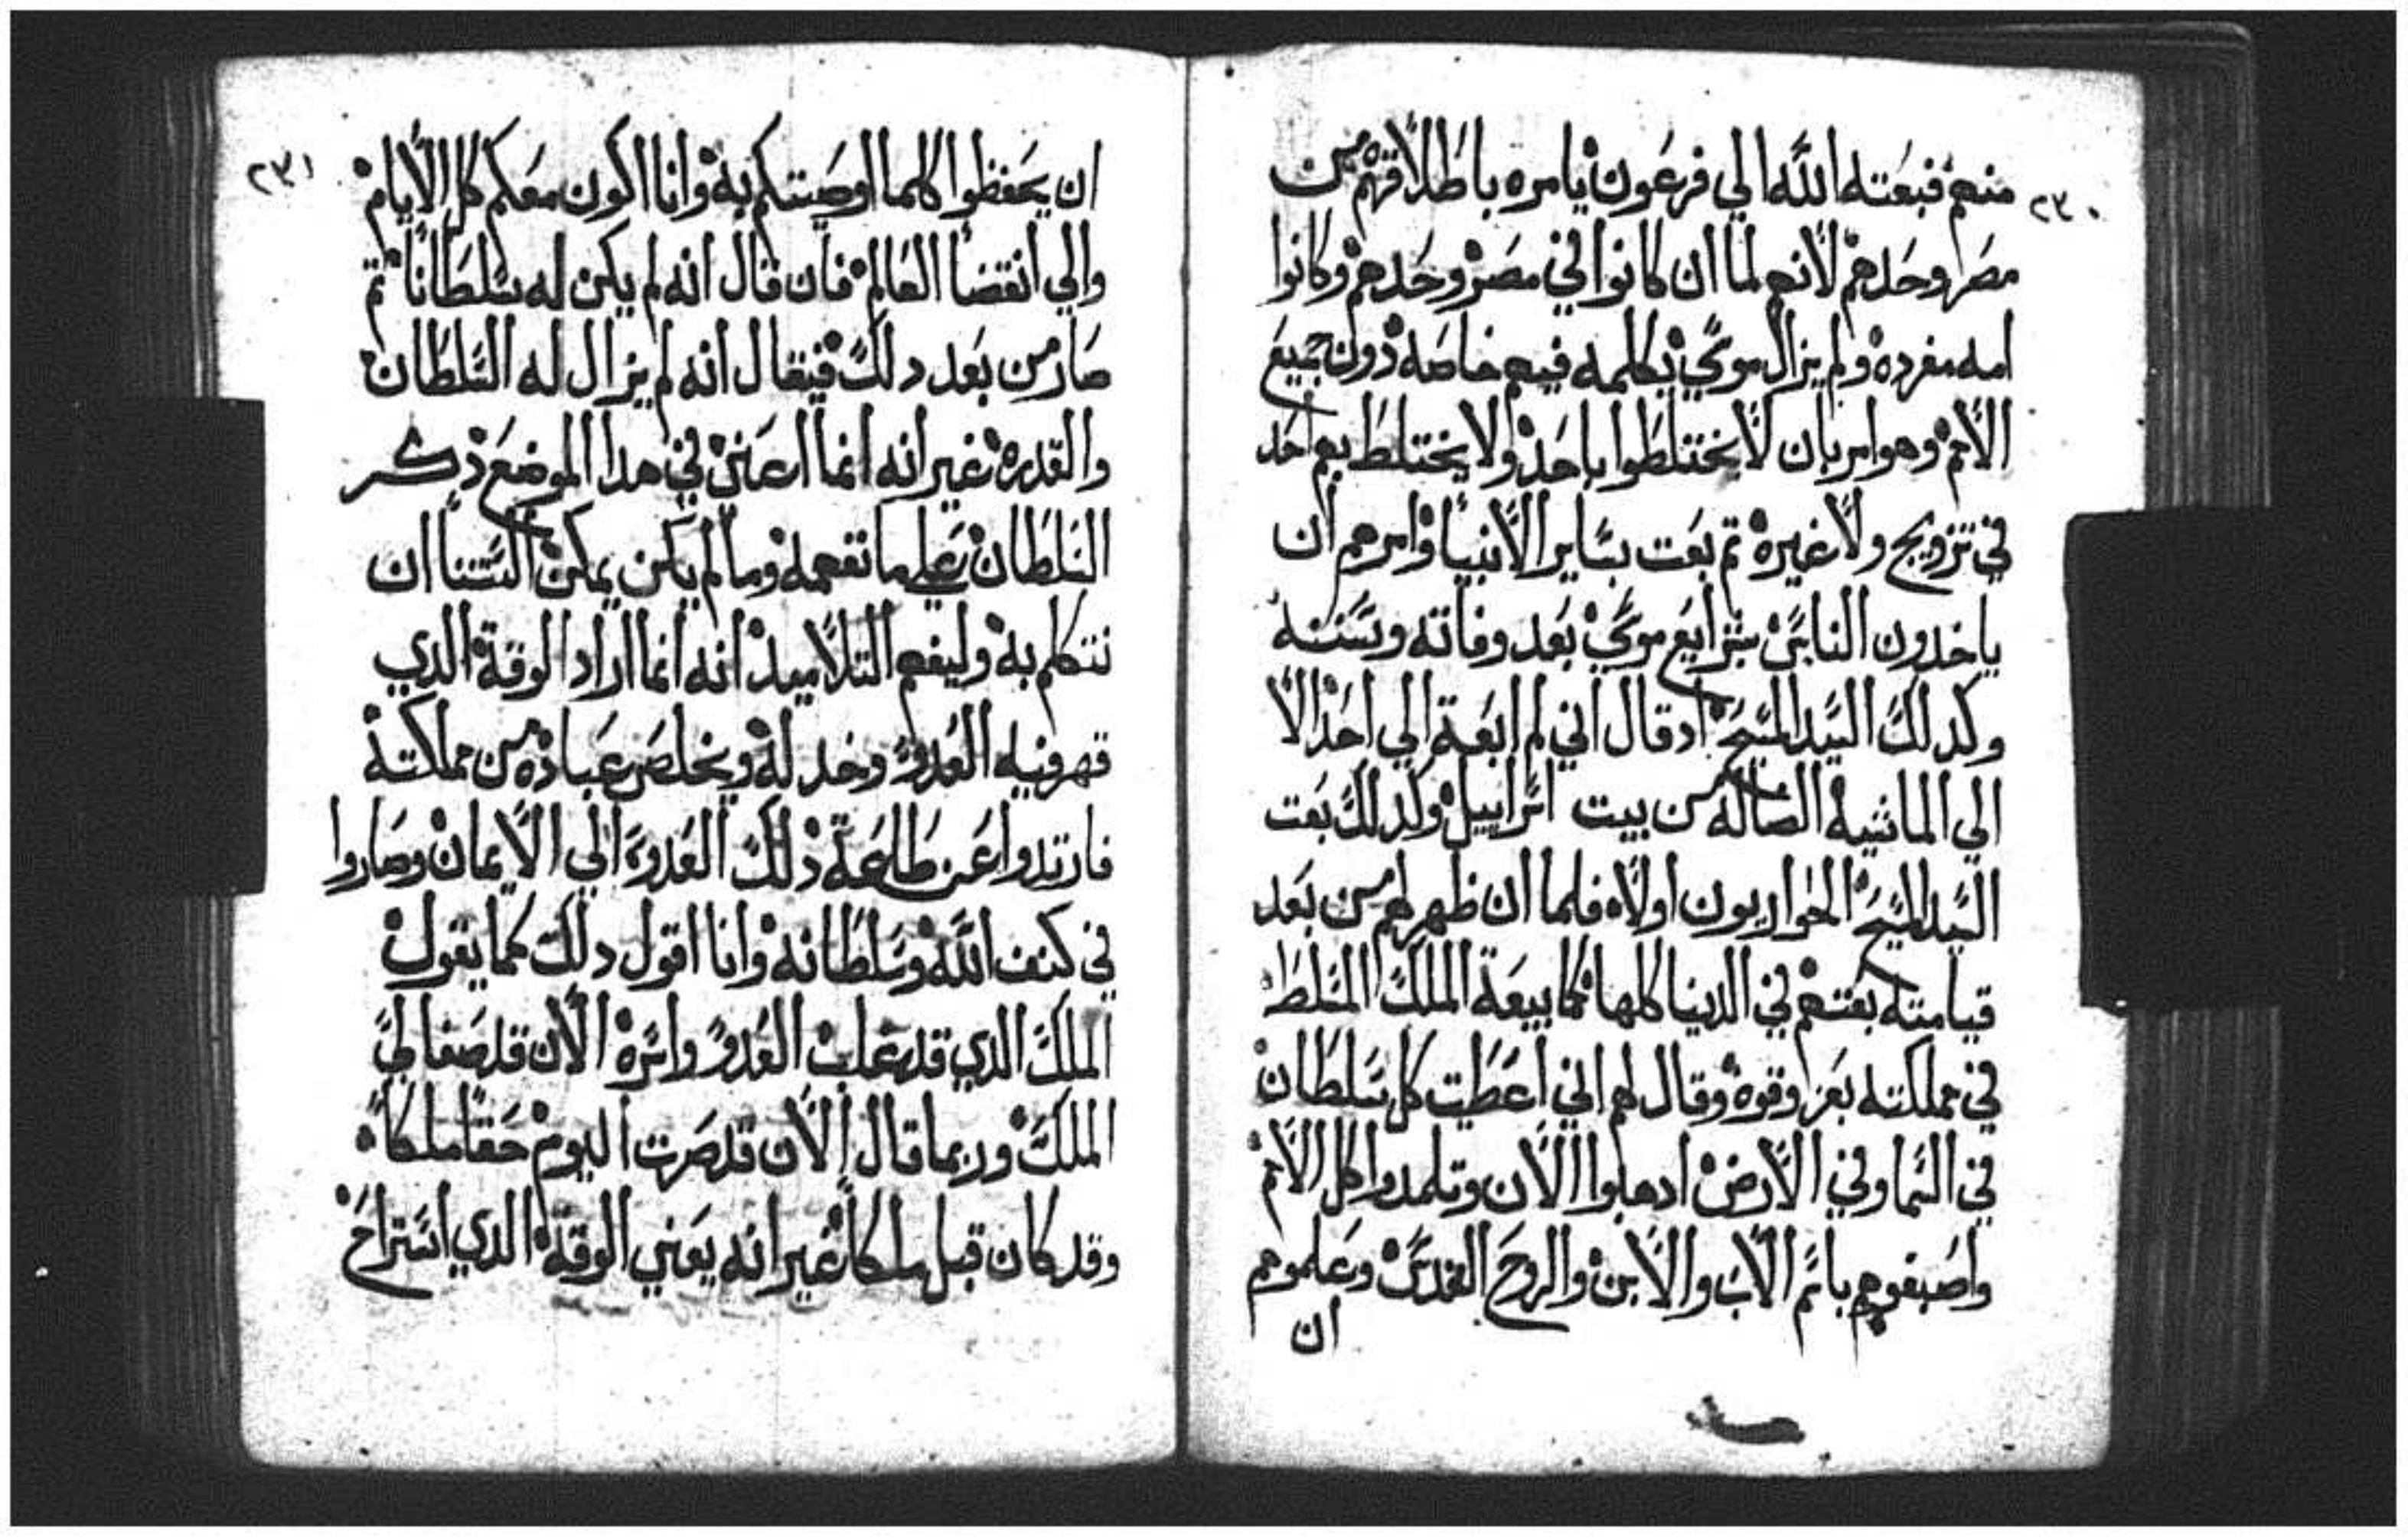 ٢٣٠
منهم فبعته الله الي فرعون يامره باطلاقهم من
مصر وحدهم لانهم لما ان كانوا في مصر وحدهم وكانوا
امه مفرده ولم يزال موسي يكلمه فيهم خاصه دون جميع
الامم وهو امر بان لا يختلطوا باحد ولا يختلط بهم احد
في تزويج ولا غيره تم بعت بساير الانبيا وامرهم ان
ياخدون الناس بشرايع موسي بعد وفاته وسننه
وكدلك السيد المسيح ادقال اني لم ابعة الي احد الا
الي الماشيه الضاله من بيت اسراييل وكدلك بعت
السيد المسيح الحواريون اولاه فلما ان ظهر لهم من بعد
قيامته بعتهم في الدنيا كلها كما بيعة الملك المسلط
في مملكته بعز وقوه وقال لهم اني اعطيت كل سلطان
في السما وفي الارض ادهبوا الان وتلمدوا كل الامم
واصبغوهم باسم الاب والابن والروح القدس وعلموهم
ان
٢٣١
ان يحفظوا كلما اوصيتكم به وانا اكون معكم كل الايام
والي انقضا العالم فان قال انه لم يكن له سلطانا تم
صار من بعد دلك فيقال انه لم يزال له السلطان
والقدره غير انه انما اعني في هدا الموضع دكر
السلطان علي ما تفهمه وما لم يكن يمكن السننا ان
نتكلم به وليفهم التلاميد انه انما اراد الوقة الدي
قهر فيه العدو وخدله ويخلص عباده من مملكته
فارتدوا عن طاعة دلك العدو الي الايمان وصاروا
في كنف الله وسلطانه وانا اقول دلك كما يقول
الملك الدي قد غلب العدو واسره الان قد صفا لي
الملك وربما قال الان قد صرت اليوم حقا ملكا
وقد كان قبل ملكا غير انه يعني الوقة الدي استراح